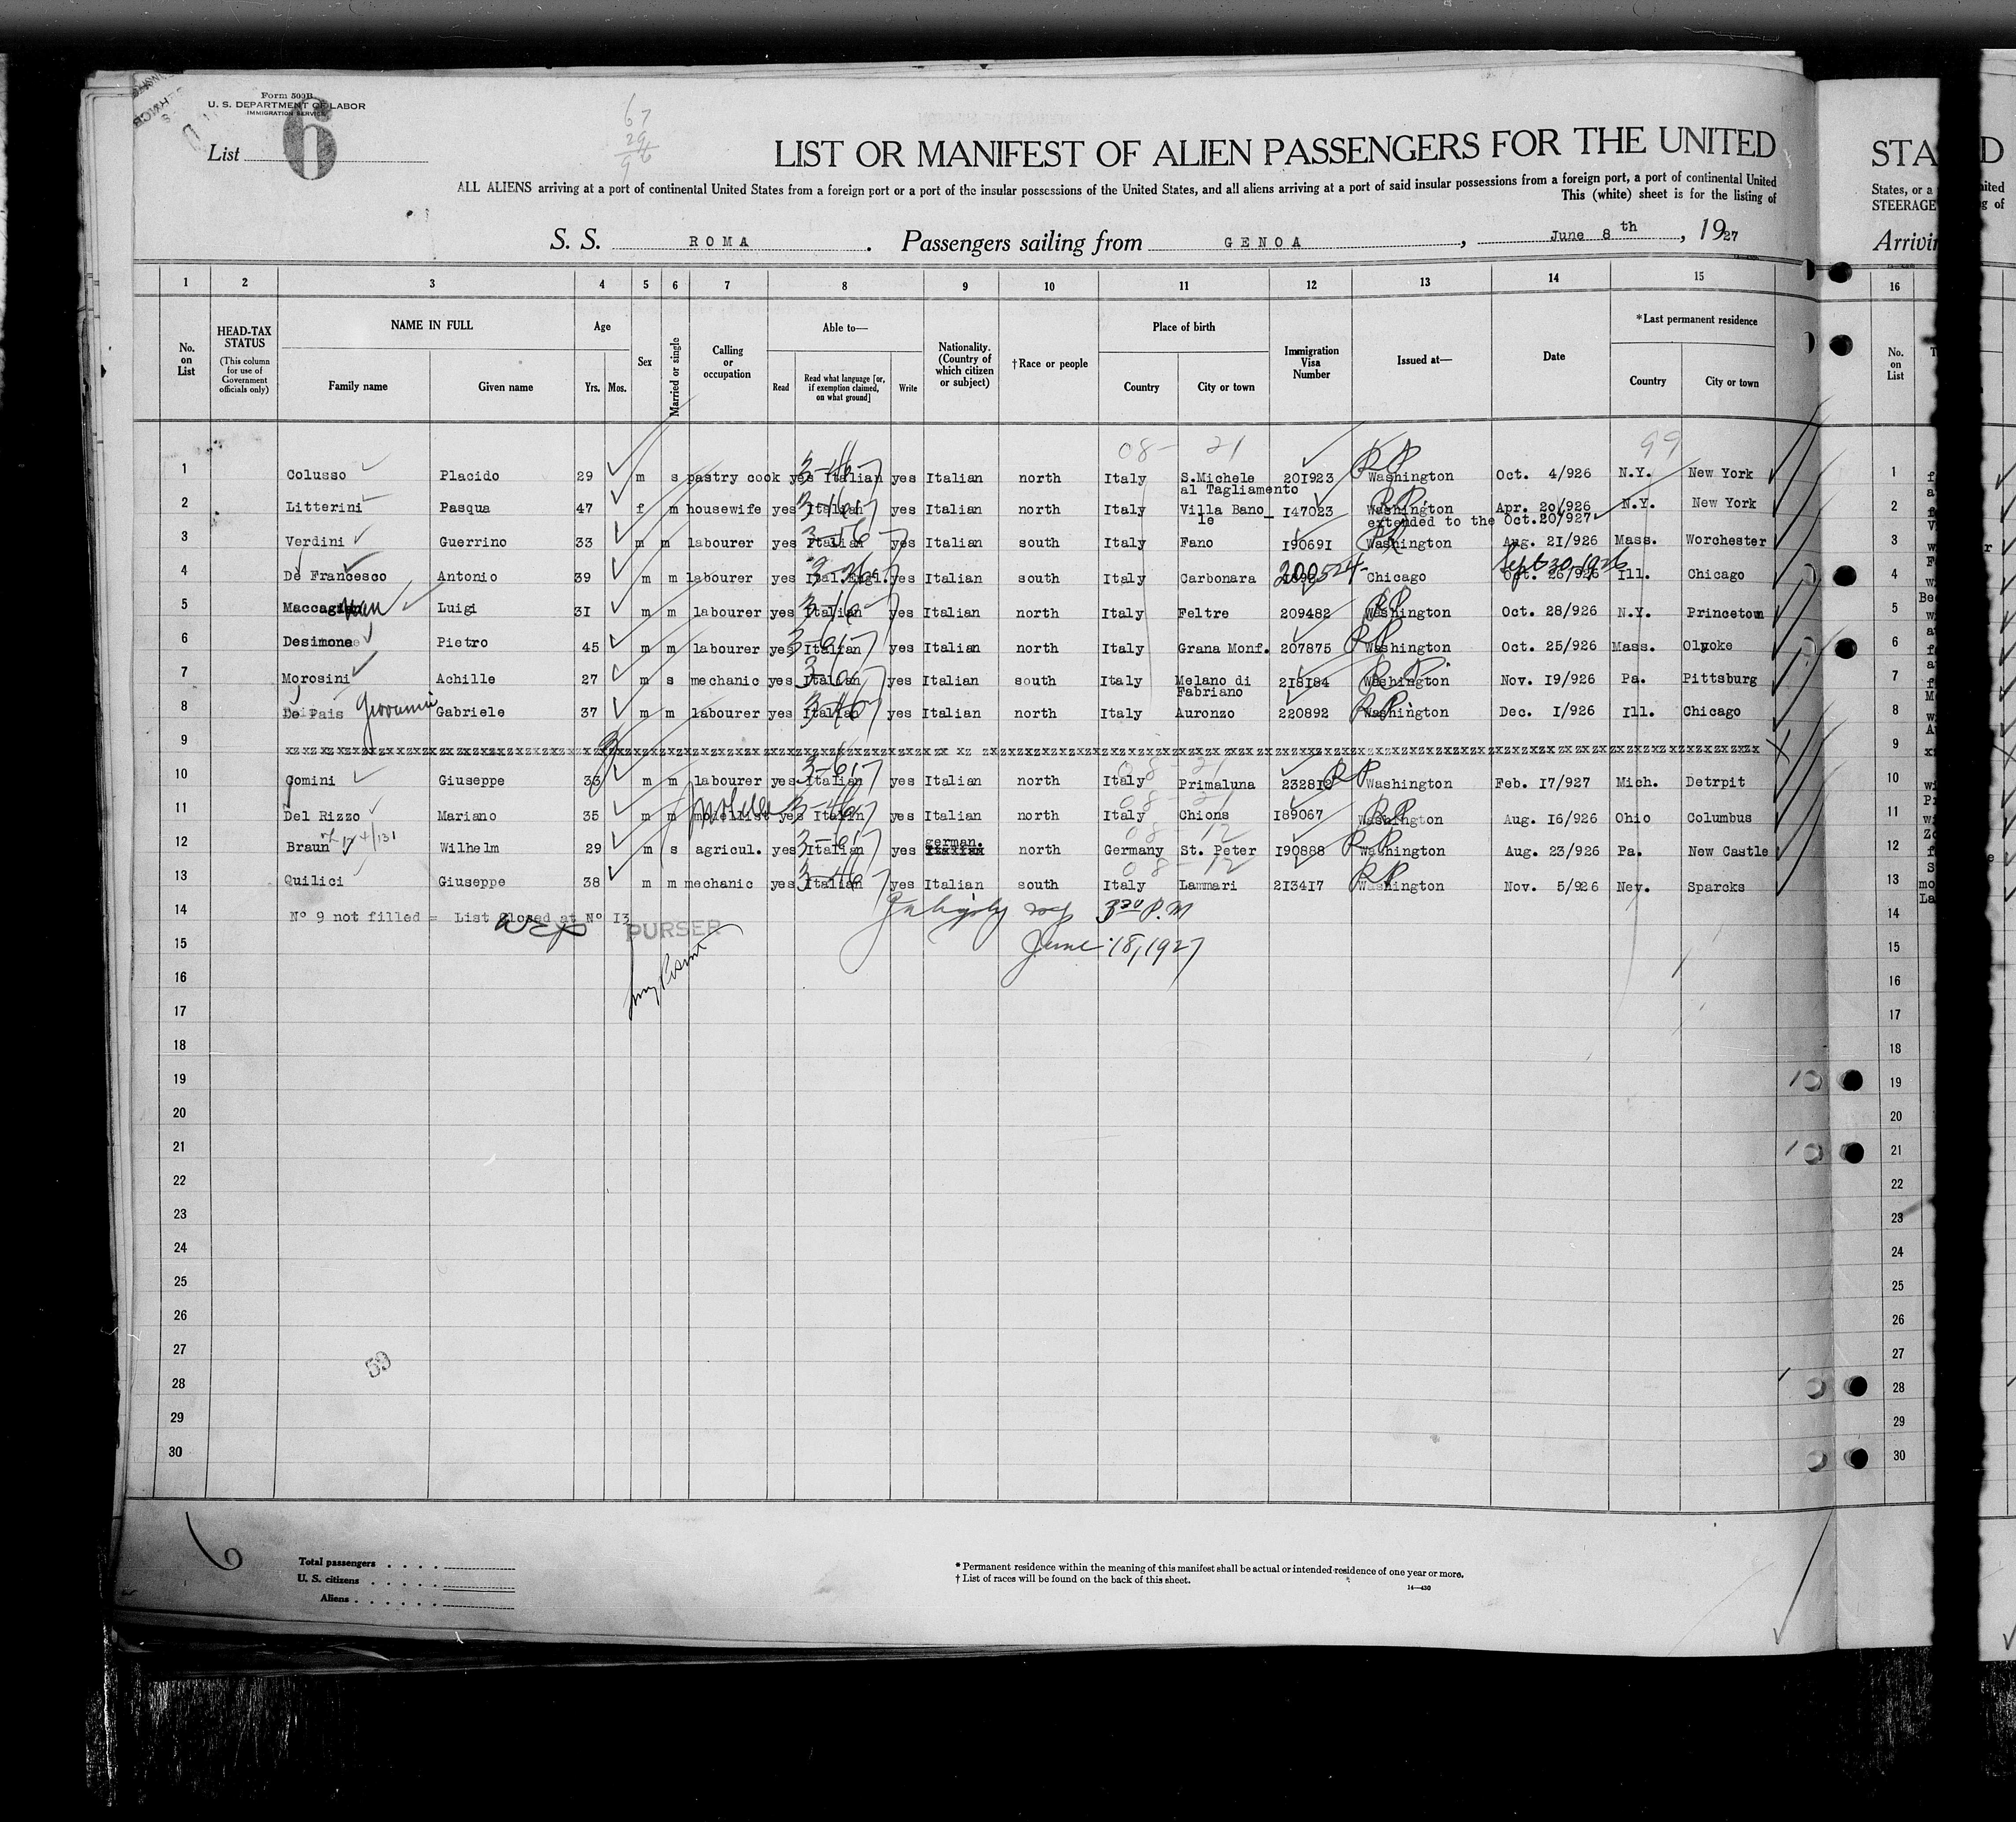 Form 500B
U. S. DEPARTMENT OF LABOR
IMMIGRATION SERVICE
List 6
67
29
96
LIST OR MANIFEST OF ALIEN PASSENGERS FOR THE UNITED
ALL ALIENS arriving at a port of continental United States from a foreign port or a port of the insular possessions of the United States, and all aliens arriving at a port of said insular possessions from a foreign port, a port of continental United
This (white) sheet is for the listing of
S. S. ROMA. Passengers sailing from GENOA, June 8th, 1927
1 2 3 4 5 6 7 8 9 10 11 12 13 14 15
No. on List
HEAD-TAX STATUS (This column for use of Government officials only)
NAME IN FULL Family name Given name
Age Yrs. Mos.
Sex
Married or single
Calling or occupation
Able to— Read Read what language [or, if exemption claimed, on what ground] Write
Nationality. (Country of which citizen or subject)
†Race or people
Place of birth Country City or town
Immigration Visa Number
Issued at—
Date
*Last permanent residence Country City or town
08 - 21 99
1 Colusso Placido 29 m s pastry cook yes Italian yes Italian north Italy S.Michele al Tagliamento 201923 Washington Oct. 4/926 N.Y. New York
2 Litterini Pasqua 47 f m housewife yes Italian yes Italian north Italy Villa Bano_le 147023 Washington Apr. 20/926 N.Y. New York
extended to the Oct.20/927
3 Verdini Guerrino 33 m m labourer yes Italian yes Italian south Italy Fano 190691 Washington Aug. 21/926 Mass. Worchester
4 De Francesco Antonio 39 m m labourer yes Ital.Engl. yes Italian south Italy Carbonara 200524 Chicago Sept 30, 1926 Oct. 26/926 Ill. Chicago
5 Luigi 31 m m labourer yes Italian yes Italian north Italy Feltre 209482 Washington Oct. 28/926 N.Y. Princetown
6 Desimone Pietro 45 m m labourer yes Italian yes Italian north Italy Grana Monf. 207875 Washington Oct. 25/926 Mass. Olyoke
7 Morosini Achille 27 m s mechanic yes Italian yes Italian south Italy Melano di Fabriano 218184 Washington Nov. 19/926 Pa. Pittsburg
8 De Pais Giovanni Gabriele 37 m m labourer yes Italian yes Italian north Italy Auronzo 220892 Washington Dec. 1/926 Ill. Chicago
9
10 Gomini Giuseppe 33 m m labourer yes Italian yes Italian north Italy Primaluna 232812 Washington Feb. 17/927 Mich. Detrpit
11 Del Rizzo Mariano 35 m m modellist yes Italin yes Italian north Italy Chions 189067 Washington Aug. 16/926 Ohio Columbus
12 Braun Wilhelm 29 m s agricul. yes Italian yes german. north Germany St. Peter 190888 Washington Aug. 23/926 Pa. New Castle
13 Quilici Giuseppe 38 m m mechanic yes Italian yes Italian south Italy Lammari 213417 Washington Nov. 5/926 Nev. Sparcks
14 Nº 9 not filled = List Closed at Nº 13
PURSER
3 30 P.M
15 June 18, 1927
16
17
18
19
20
21
22
23
24
25
26
27
28
29
30
59
6
Total passengers
U. S. citizens
Aliens
* Permanent residence within the meaning of this manifest shall be actual or intended residence of one year or more.
† List of races will be found on the back of this sheet.
14—430
STA
States, or a
STEERAGE
Arrivin
16
No. on List
1
2
3
4
5
6
7
8
9
10
11
12
13
14
15
16
17
18
19
20
21
22
23
24
25
26
27
28
29
30